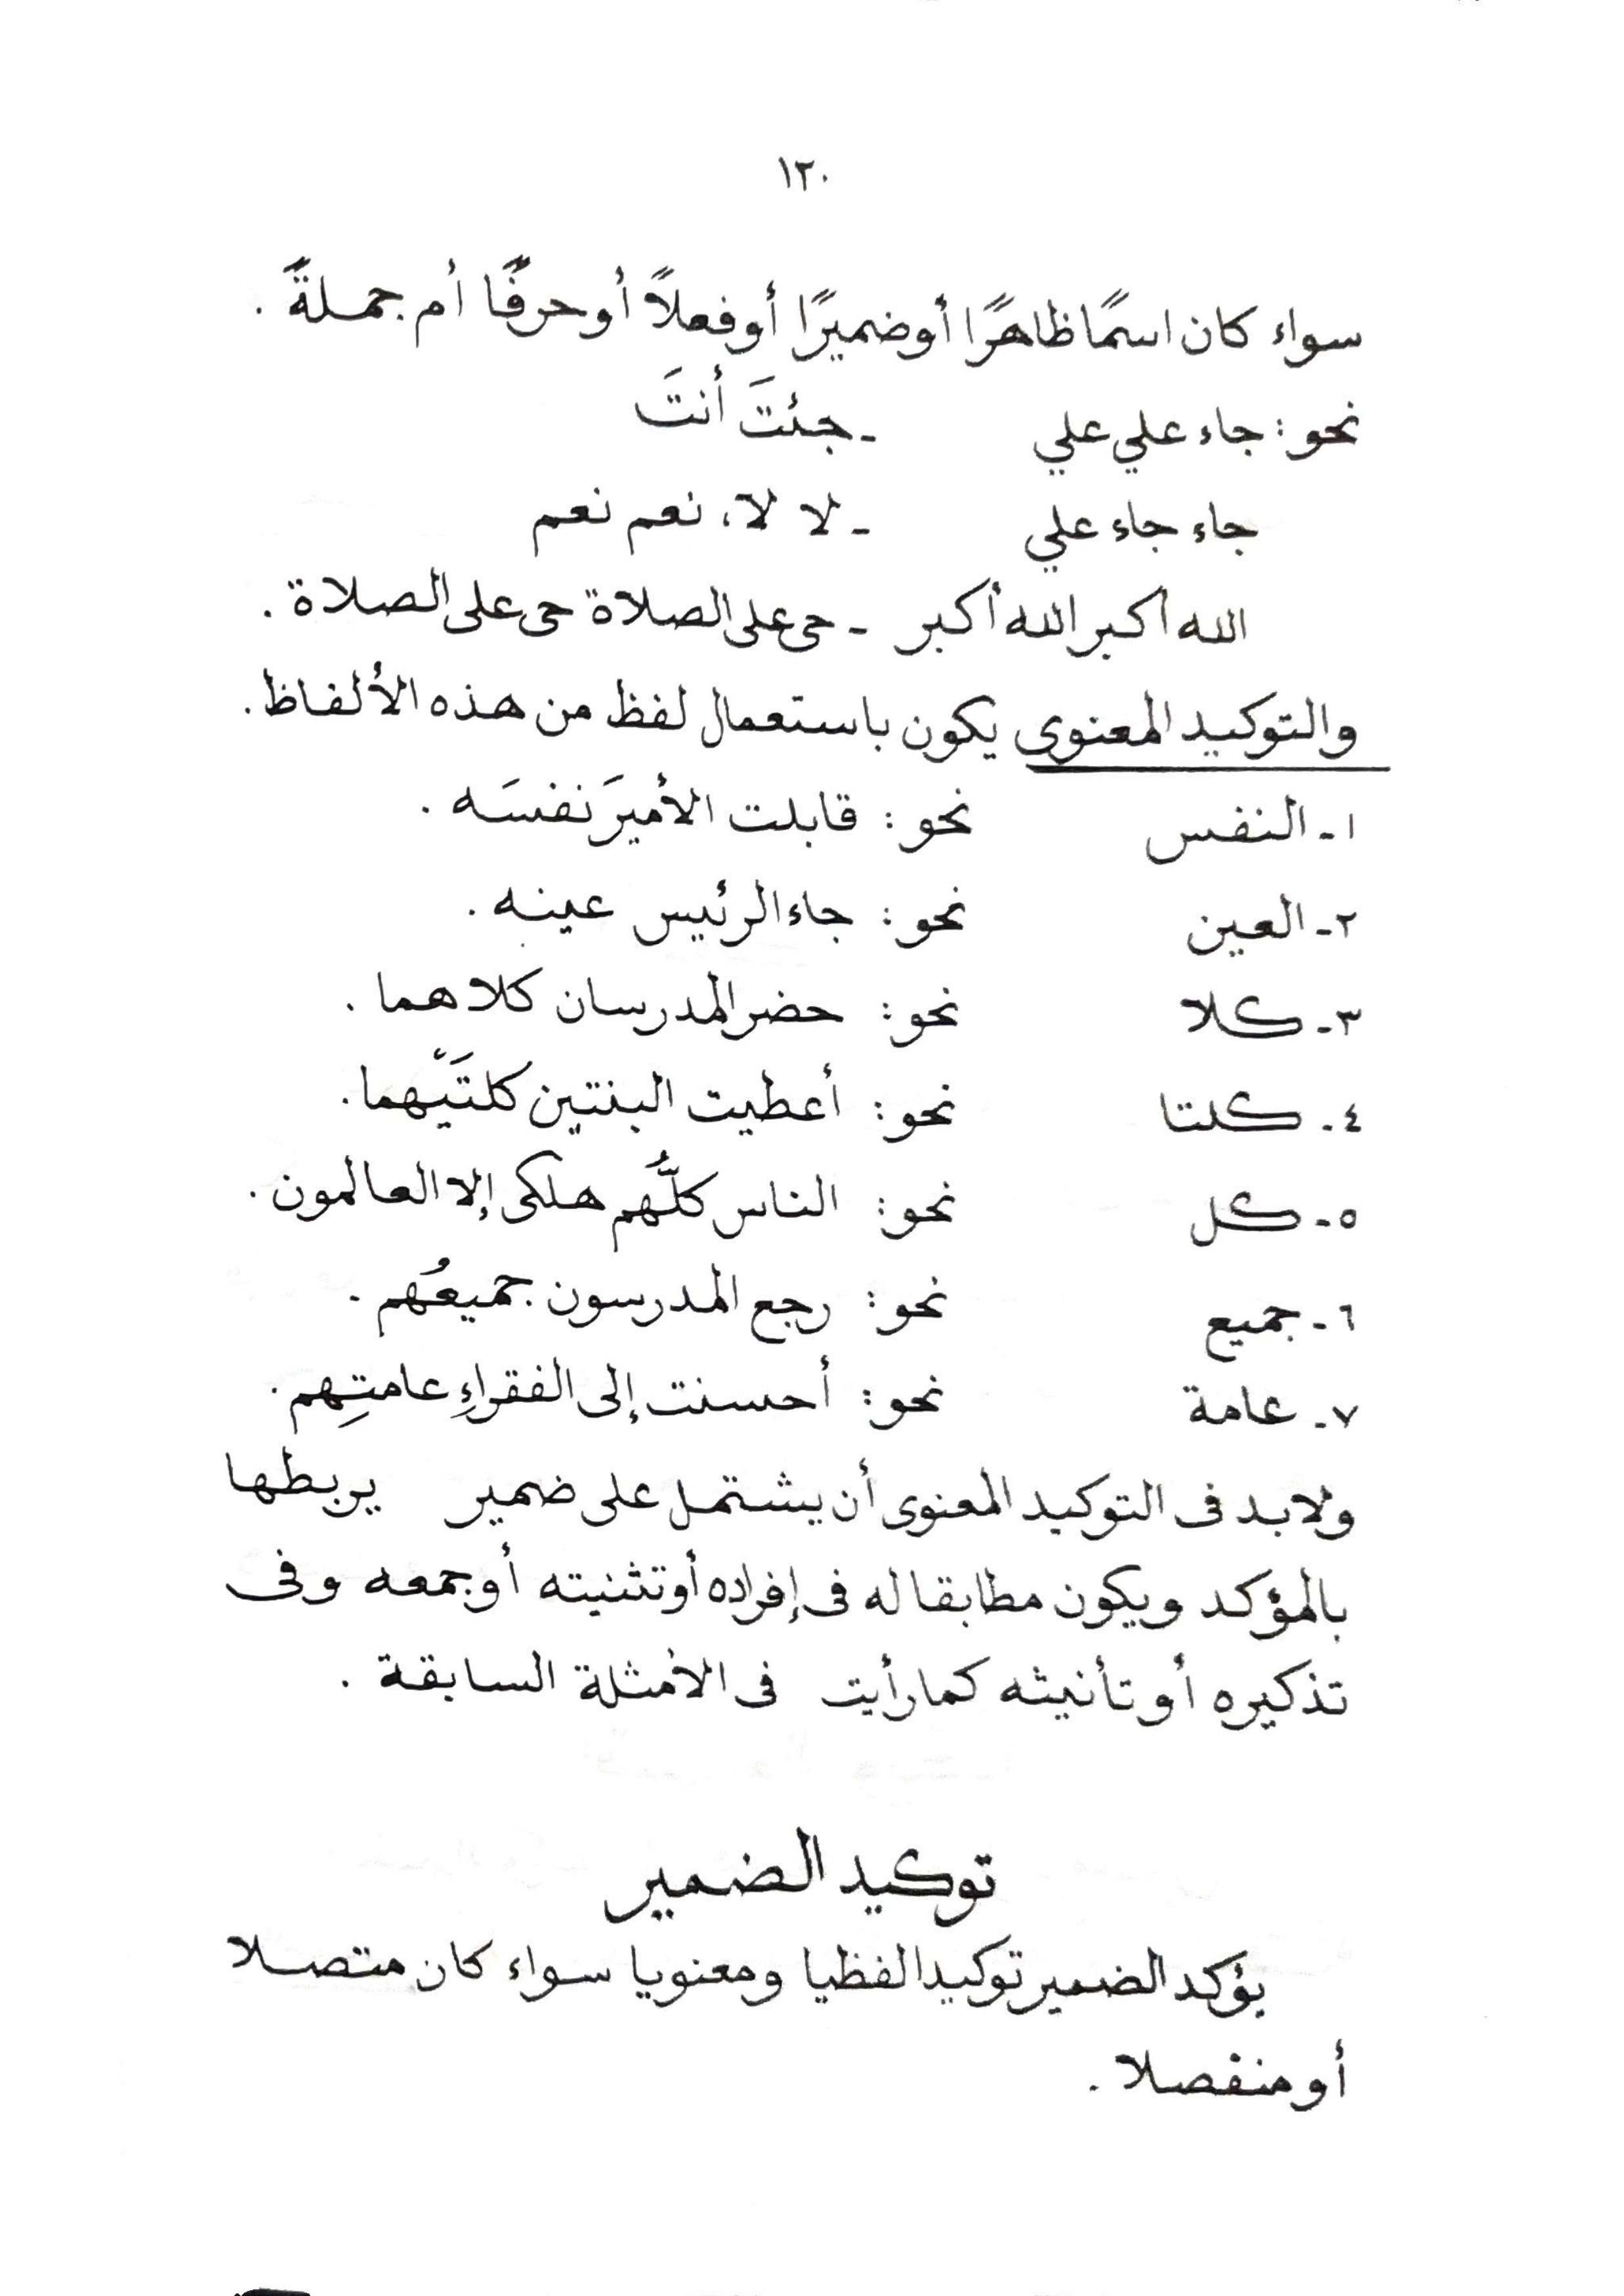 ١٢٠
سواء كان اسمًا ظاهرًا أو ضميرًا أو فعلاً أو حرفًا أم جملةً .
نحو : جاء علي علي - جئتَ أنتَ
جاء جاء علي - لا لا، نعم نعم
الله أكبر الله أكبر - حى على الصلاة حى على الصلاة .
والتوكيد المعنوى يكون باستعمال لفظ من هذه الألفاظ .
١- النفس نحو : قابلت الأميرَ نفسَه .
٢- العين نحو : جاء الرئيس عينه .
٣- كلا نحو : حضر المدرسان كلاهما .
٤- كلتا نحو : أعطيت البنتين كلتَيْهما .
٥- كل نحو : الناس كلُّهم هلكى إلا العالمون .
٦- جميع نحو : رجع المدرسون جميعُهم .
٧- عامة نحو : أحسنت إلى الفقراءِ عامتِهم .
ولابد فى التوكيد المعنوى أن يشتمل على ضمير يربطها
بالمؤكد ويكون مطابقا له فى إفراده أو تثنيته أو جمعه وفى
تذكيره أو تأنيثه كما رأيت فى الأمثلة السابقة .
توكيد الضمير
يؤكد الضمير توكيدا لفظيا ومعنويا سواء كان متصلا
أو منفصلا .